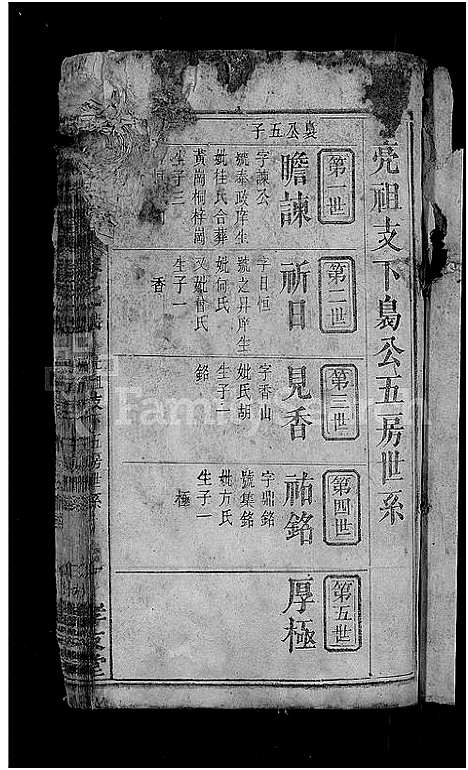 亮祖支下曷公五房世系
第一世
第二世
第三世
第四世
第五世
公五子
瞻諫
字諫公
號泰政庠生
妣桂氏合葬
黃崗桐梓崗
生子三
祈日
字日恒
號之昇庠生
妣何氏
又妣曾氏
生子一
香
見香
字香山
妣氏胡
生子一
銘
祐銘
字鼎銘
號集銘
妣方氏
生子一
極
厚極
FamilySearch